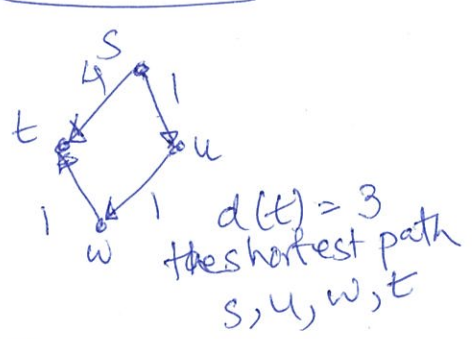 S
4 1
t
u
1 1
w
d(t) = 3
the shortest path
s, u, w, t